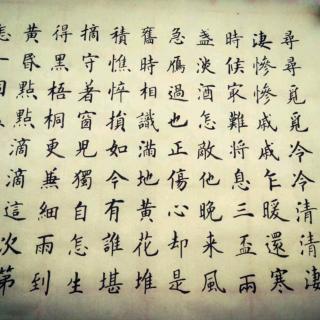 尋尋覓覓冷冷清清淒
淒慘慘戚戚乍暖還寒
時候冣難將息三盃兩
盞淡酒怎敵他晚来風
急鴈過也正傷心却是
舊時相識滿地黃花堆
積憔悴損如今有誰堪
摘守著窗兒獨自怎生
得黑梧桐更兼細雨到
黃昏點點滴滴這次第
怎一